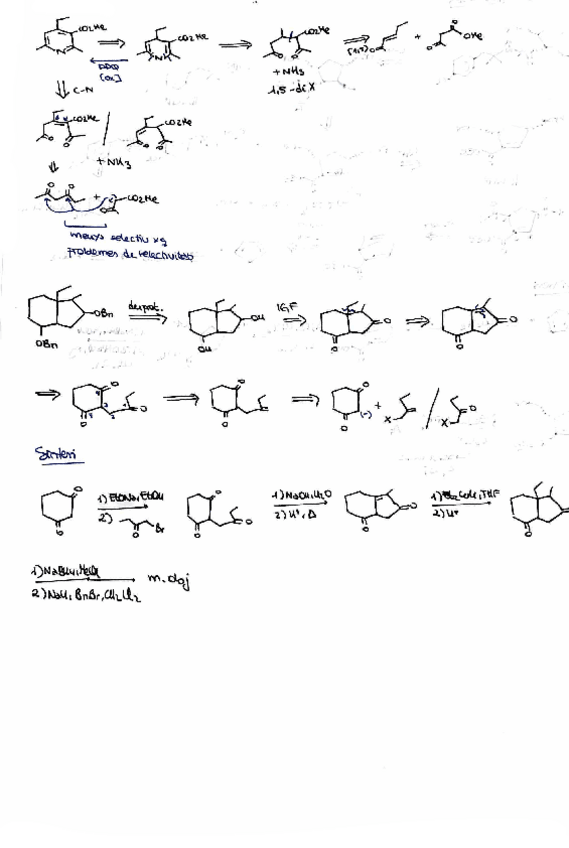 CO2Me
CO2Me
CO2Me
N
DDQ
[Ox]
+ NH3
1,5-diX
+
OMe
C-N
CO2Me
CO2Me
+ NH3
+
CO2Me
menys selectiu xq
problemes de selectivitat
OBn
OBn
desprot.
OH
OH
IGF
O
O
O
O
O
O
O
O
O
O
(-)
+
X
X
O
Síntesi
1) EtONa, EtOH
2)
Br
1) NaOH, H2O
2) H+, Δ
1) Et2CuLi, THF
2) H+
1) NaBH4, MeOH
2) NaH, BnBr, CH2Cl2
m. doj